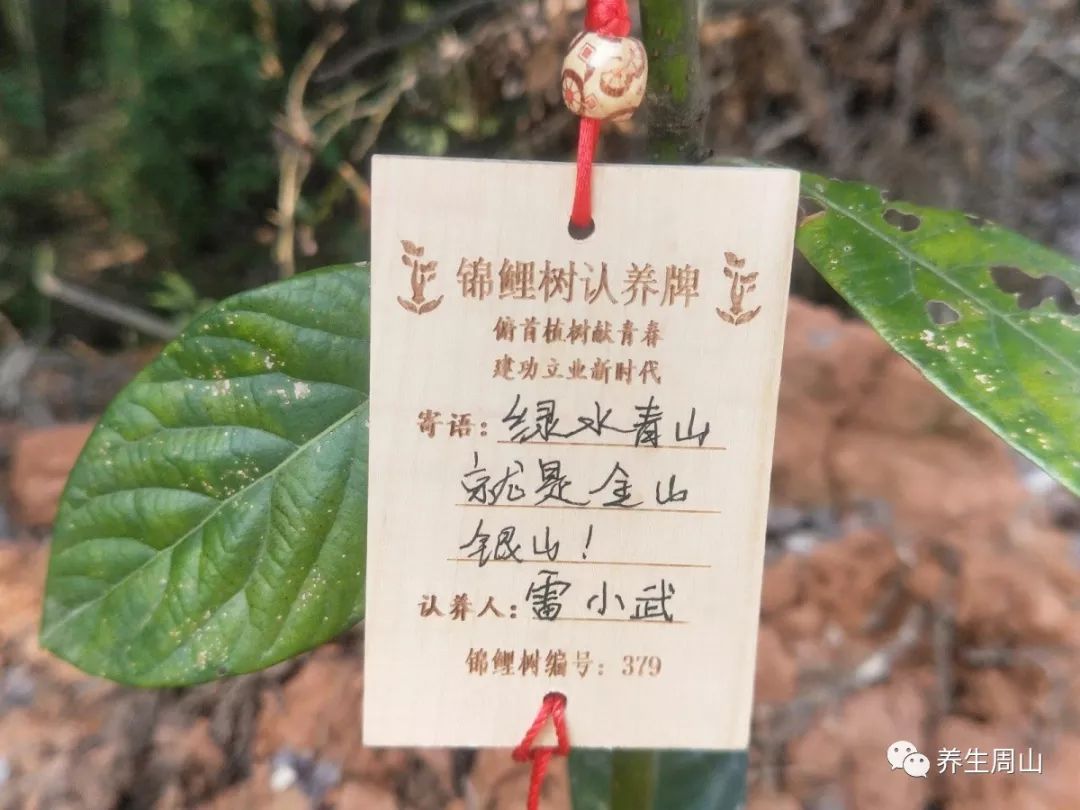 锦鲤树认养牌
俯首植树献青春
建功立业新时代
寄语：绿水青山
就是金山
银山！
认养人：雷小武
锦鲤树编号：379
养生周山